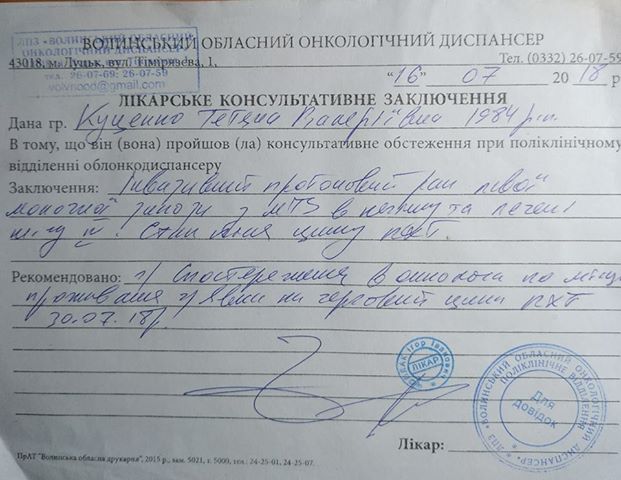 ЛПЗ "ВОЛИНСЬКИЙ ОБЛАСНИЙ
ОНКОЛОГІЧНИЙ ДИСПАНСЕР"
тел. 26-07-69; 26-07-59
volynood@gmail.com
ВОЛИНСЬКИЙ ОБЛАСНИЙ ОНКОЛОГІЧНИЙ ДИСПАНСЕР
43018, м. Луцьк, вул. Тімірязєва, 1, Тел. (0332) 26-07-59
"16" 07 2018 р
ЛІКАРСЬКЕ КОНСУЛЬТАТИВНЕ ЗАКЛЮЧЕННЯ
Дана гр. Куценко Тетяна Валеріївна 1984 р.н.
В тому, що він (вона) пройшов (ла) консультативне обстеження при поліклінічному
відділенні облонкодиспансеру
Заключення: Інвазивний протоковий рак лівої
молочної залози з МТЗ в печінку та легені
IV. Стан після циклу ПХТ.
Рекомендовано: Спостереження в онколога по місцю
проживання явки на черговий цикл ПХТ
30.07.18р.
Ігор Іванович
ЛІКАР
ВОЛИНСЬКИЙ ОБЛАСНИЙ ОНКОЛОГІЧНИЙ ДИСПАНСЕР
ПОЛІКЛІНІЧНЕ ВІДДІЛЕННЯ
Для
довідок
Лікар:
ПрАТ "Волинська обласна друкарня", 2015 р., зам. 5021, т. 5000, тел.: 24-25-01, 24-25-07.